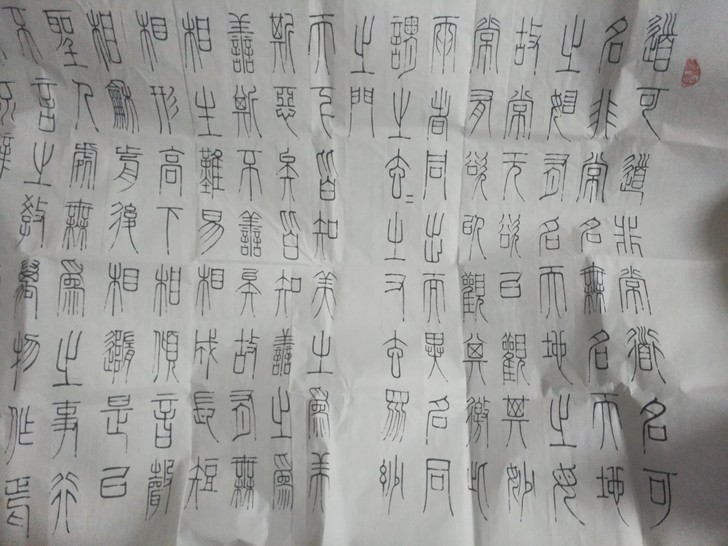 道可道非常道名可
名非常名無名天地
之始有名天地之母
故常无欲以觀其妙
常有欲以觀其徼此
兩者同出而異名同
謂之玄〻之又玄眾妙
之門
天下皆知美之爲美
斯惡矣皆知善之爲
善斯不善矣故有無
相生難易相成長短
相形高下相傾音聲
相龢前後相隨是以
聖人處無爲之事行
不言之教萬物作焉